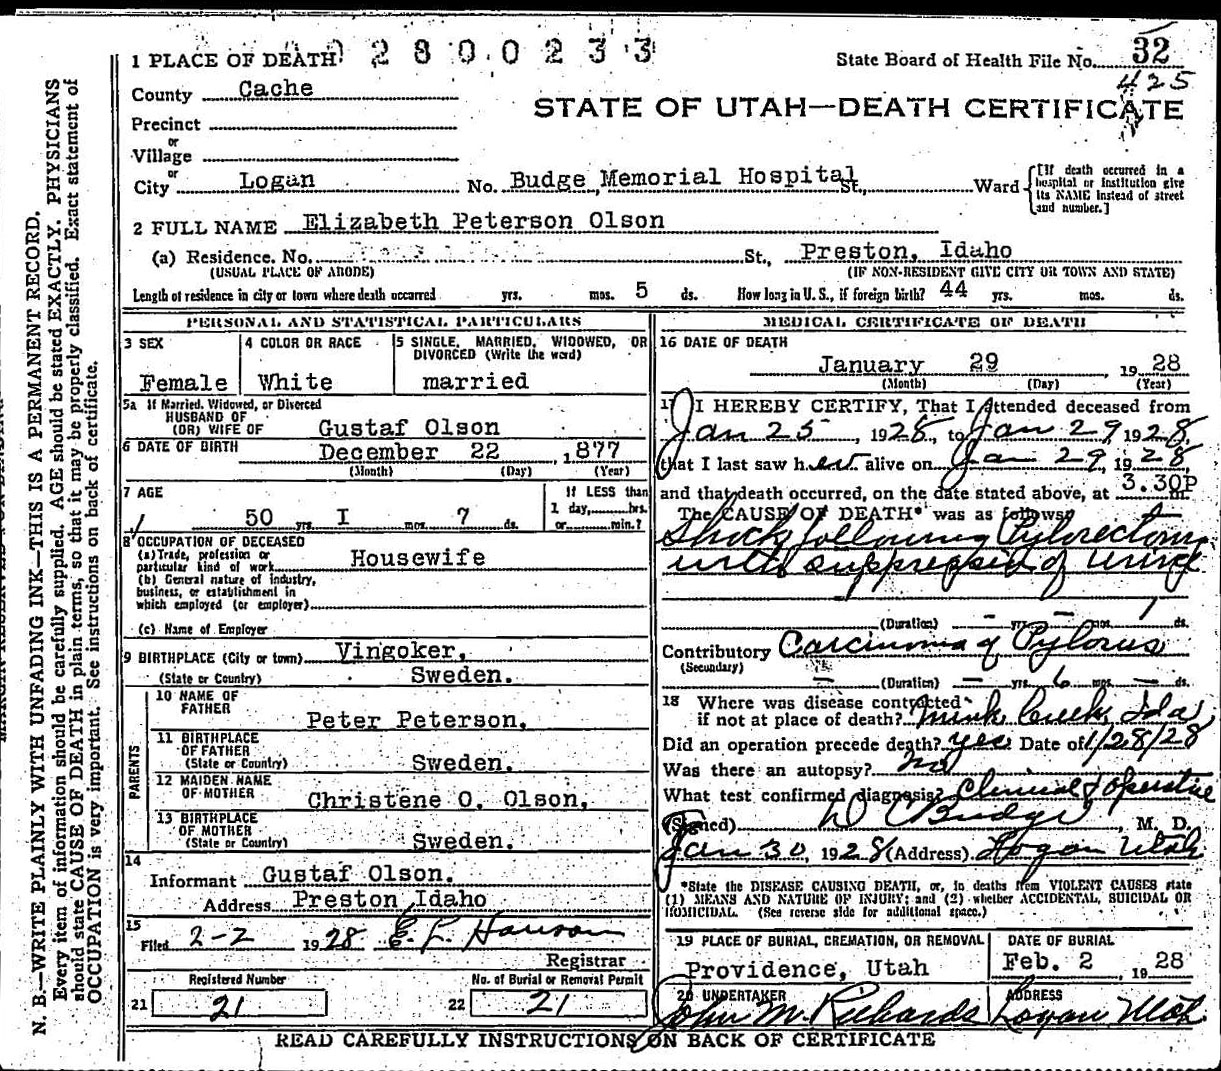 1 PLACE OF DEATH 0 2 8 0 0 2 3 3
State Board of Health File No. 32
425
County Cache
STATE OF UTAH—DEATH CERTIFICATE
Precinct
or
Village
or
City Logan No. Budge Memorial Hospital St., Ward
[If death occurred in a hospital or institution give its NAME instead of street and number.]
2 FULL NAME Elizabeth Peterson Olson
(a) Residence. No. St., Preston, Idaho
(USUAL PLACE OF ABODE) (IF NON-RESIDENT GIVE CITY OR TOWN AND STATE)
Length of residence in city or town where death occurred yrs. mos. 5 ds. How long in U. S., if foreign birth? 44 yrs. mos. ds.
PERSONAL AND STATISTICAL PARTICULARS
3 SEX
Female
4 COLOR OR RACE
White
5 SINGLE, MARRIED, WIDOWED, OR DIVORCED (Write the word)
married
5a If Married, Widowed, or Divorced
HUSBAND OF
(OR) WIFE OF Gustaf Olson
6 DATE OF BIRTH December 22, 1877
(Month) (Day) (Year)
7 AGE
50 yrs. I mos. 7 ds.
If LESS than
1 day, hrs.
or min.?
8 OCCUPATION OF DECEASED
(a) Trade, profession or
particular kind of work Housewife
(b) General nature of industry,
business, or establishment in
which employed (or employer)
(c) Name of Employer
9 BIRTHPLACE (City or town) Vingoker,
(State or Country) Sweden.
PARENTS
10 NAME OF
FATHER Peter Peterson,
11 BIRTHPLACE
OF FATHER
(State or Country) Sweden.
12 MAIDEN NAME
OF MOTHER Christene O. Olson,
13 BIRTHPLACE
OF MOTHER
(State or Country) Sweden.
14
Informant Gustaf Olson.
Address Preston, Idaho
15
Filed 2-2 1928 E. L. Hanson
Registrar
Registered Number
21 21
No. of Burial or Removal Permit
22 21
MEDICAL CERTIFICATE OF DEATH
16 DATE OF DEATH
January 29, 1928
(Month) (Day) (Year)
17 I HEREBY CERTIFY, That I attended deceased from
Jan 25, 1928, to Jan 29 1928,
that I last saw her alive on Jan 29, 1928,
and that death occurred, on the date stated above, at 3.30P m.
The CAUSE OF DEATH* was as follows:
Shock following Pylorectomy
with suppression of urine
(Duration) – yrs. – mos. 1 ds.
Contributory Carcinoma of Pylorus
(Secondary) (Duration) – yrs. 6 mos. – ds.
18 Where was disease contracted
if not at place of death? Mink Creek, Ida
Did an operation precede death? yes Date of 1/28/28
Was there an autopsy? no
What test confirmed diagnosis? Clinical & operative
(Signed) D C Budge, M. D.
Jan 30, 1928 (Address) Logan Utah
*State the DISEASE CAUSING DEATH, or, in deaths from VIOLENT CAUSES state
(1) MEANS AND NATURE OF INJURY; and (2) whether ACCIDENTAL, SUICIDAL OR
HOMICIDAL. (See reverse side for additional space.)
19 PLACE OF BURIAL, CREMATION, OR REMOVAL
Providence, Utah
DATE OF BURIAL
Feb. 2, 1928
20 UNDERTAKER
John M. Richards
ADDRESS
Logan Utah
READ CAREFULLY INSTRUCTIONS ON BACK OF CERTIFICATE
N. B.—WRITE PLAINLY WITH UNFADING INK—THIS IS A PERMANENT RECORD.
Every item of information should be carefully supplied. AGE should be stated EXACTLY. PHYSICIANS
should state CAUSE OF DEATH in plain terms, so that it may be properly classified. Exact statement of
OCCUPATION is very important. See instructions on back of certificate.